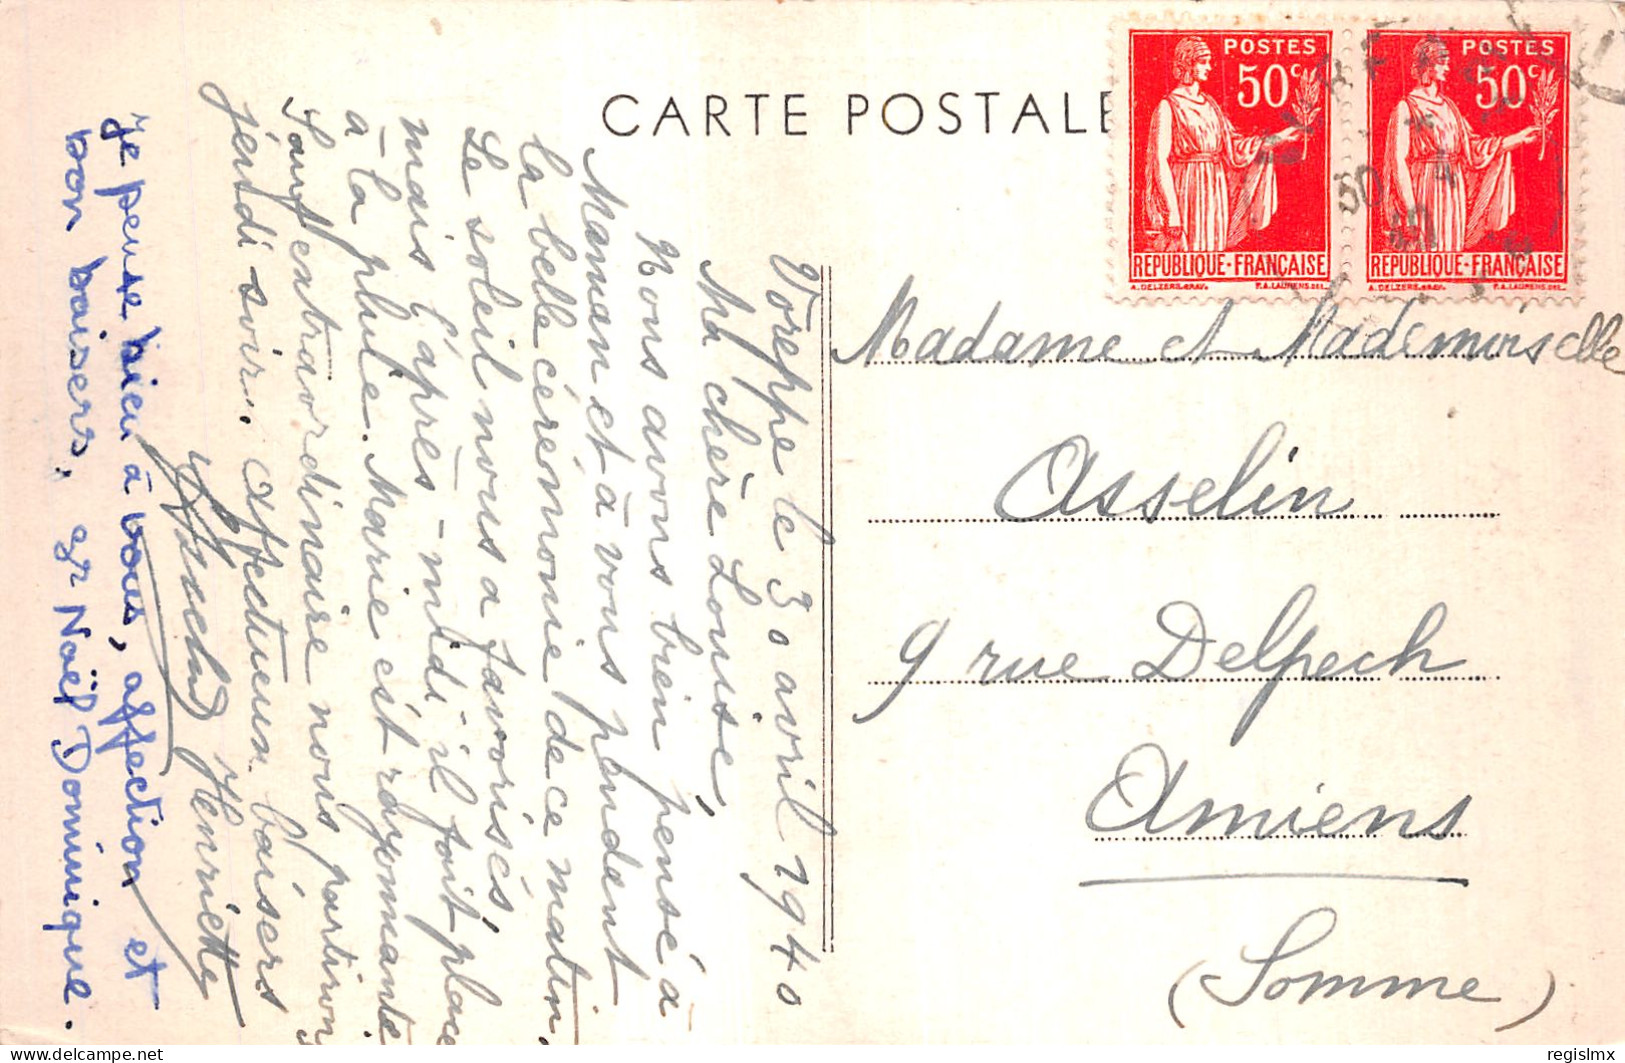 CARTE POSTALE
POSTES
50c
REPUBLIQUE-FRANÇAISE
A. DELZERS.GRAV. P.A. LAURENS DEL.
POSTES
50c
REPUBLIQUE-FRANÇAISE
A. DELZERS.GRAV. P.A. LAURENS DEL.
30 4
40
Voreppe le 30 avril 1940
Ma chère Louise,
Nous avons bien pensé à
Maman et à vous pendant
la belle cérémonie de ce matin.
Le soleil nous a favorisés,
mais l'après-midi il fait place
à la pluie. Marie est rayonnante
Sauf extraordinaire nous partirons
jeudi soir. Affectueux baisers
Henriette
Je pense bien à vous, affection et
bon baisers, et Noël Dominique.
Madame et Mademoiselle
Asselin
9 rue Delpech
Amiens
(Somme)
delcampe.net
regislmx